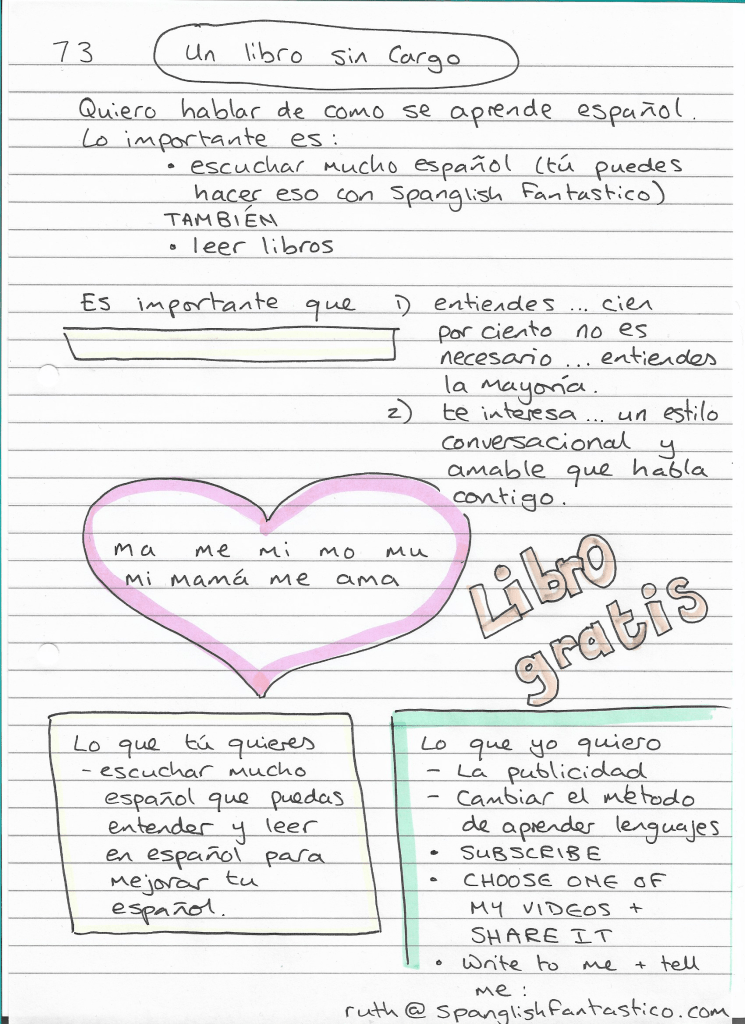 73
Un libro sin cargo
Quiero hablar de como se aprende español.
Lo importante es:
• escuchar mucho español (tú puedes
hacer eso con Spanglish Fantastico)
TAMBIÉN
• leer libros
Es importante que 1) entiendes ... cien
por ciento no es
necesario ... entiendes
la mayoría.
2) te interesa ... un estilo
conversacional y
amable que habla
contigo.
ma me mi mo mu
mi mamá me ama
Libro
gratis
Lo que tú quieres
- escuchar mucho
español que puedas
entender y leer
en español para
mejorar tu
español.
Lo que yo quiero
- La publicidad
- Cambiar el método
de aprender lenguajes
• SUBSCRIBE
• CHOOSE ONE OF
MY VIDEOS +
SHARE IT
• Write to me + tell
me:
ruth@spanglishfantastico.com